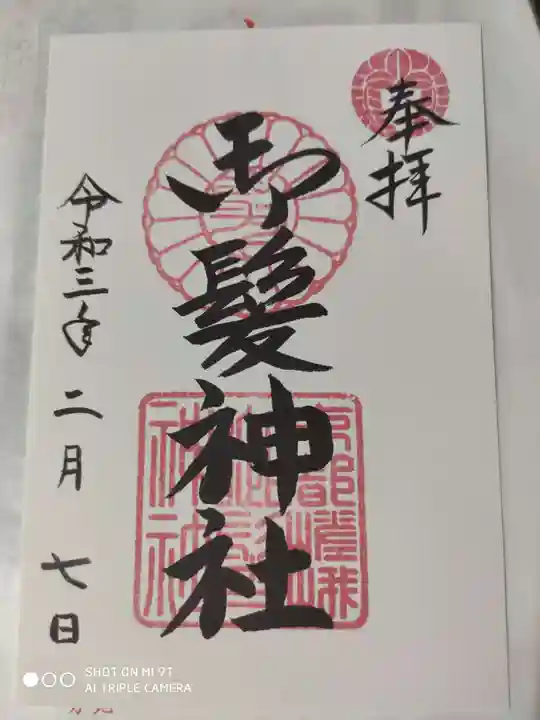 奉拝
御髪神社
令和三年 二月 七日
京都嵯峨
SHOT ON MI 9T
AI TRIPLE CAMERA